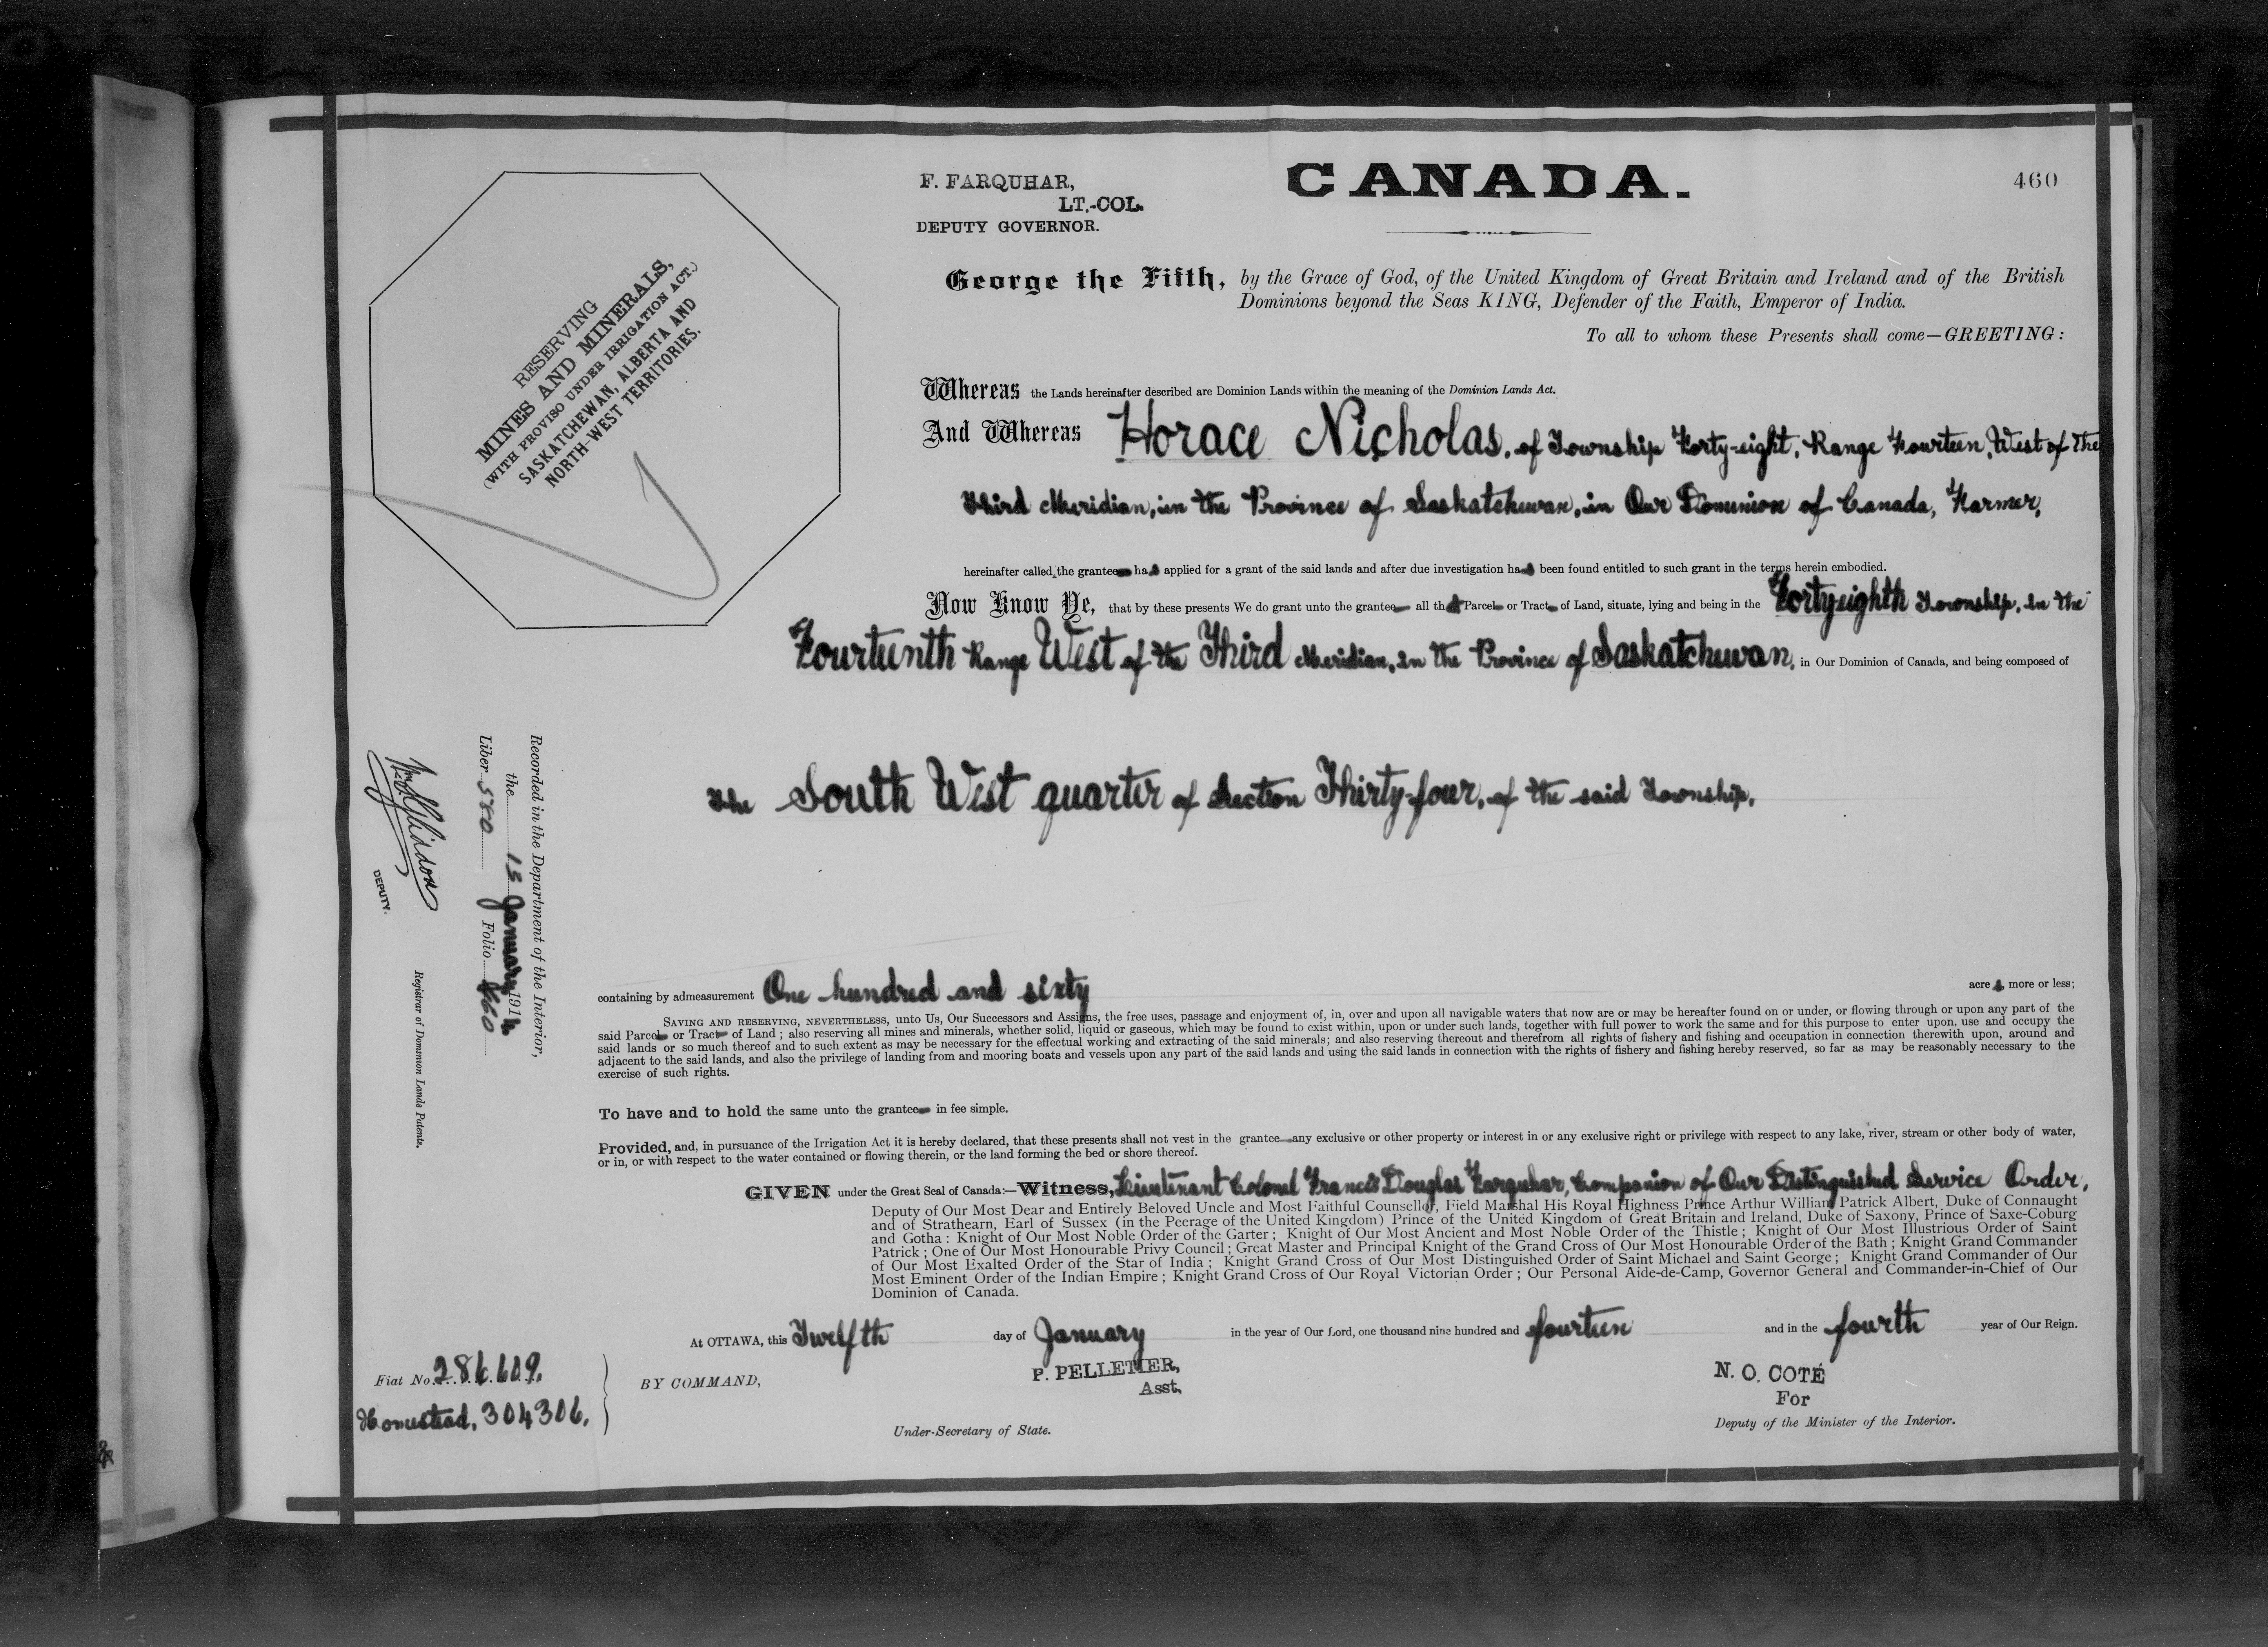 460
F. FARQUHAR,
LT.-COL.
DEPUTY GOVERNOR.
CANADA.
RESERVING
MINES AND MINERALS,
(WITH PROVISO UNDER IRRIGATION ACT.)
SASKATCHEWAN, ALBERTA AND
NORTH-WEST TERRITORIES.
George the Fifth, by the Grace of God, of the United Kingdom of Great Britain and Ireland and of the British
Dominions beyond the Seas KING, Defender of the Faith, Emperor of India.
To all to whom these Presents shall come—GREETING:
Whereas the Lands hereinafter described are Dominion Lands within the meaning of the Dominion Lands Act.
And Whereas Horace Nicholas, of Township Forty-eight, Range Fourteen, West of the
Third Meridian, in the Province of Saskatchewan, in Our Dominion of Canada, Farmer,
hereinafter called the grantee has applied for a grant of the said lands and after due investigation has been found entitled to such grant in the terms herein embodied.
Now Know Ye, that by these presents We do grant unto the grantee all that Parcel or Tract of Land, situate, lying and being in the Forty-eighth Township, in the
Fourteenth Range West of the Third Meridian, in the Province of Saskatchewan, in Our Dominion of Canada, and being composed of
The South West quarter of Section Thirty-four, of the said Township,
Recorded in the Department of the Interior,
the 13 January 1914
Liber 580 Folio 460
DEPUTY.
Registrar of Dominion Lands Patents.
containing by admeasurement One hundred and sixty acres more or less;
SAVING AND RESERVING, NEVERTHELESS, unto Us, Our Successors and Assigns, the free uses, passage and enjoyment of, in, over and upon all navigable waters that now are or may be hereafter found on or under, or flowing through or upon any part of the
said Parcel or Tract of Land; also reserving all mines and minerals, whether solid, liquid or gaseous, which may be found to exist within, upon or under such lands, together with full power to work the same and for this purpose to enter upon, use and occupy the
said lands or so much thereof and to such extent as may be necessary for the effectual working and extracting of the said minerals; and also reserving thereout and therefrom all rights of fishery and fishing and occupation in connection therewith upon, around and
adjacent to the said lands, and also the privilege of landing from and mooring boats and vessels upon any part of the said lands and using the said lands in connection with the rights of fishery and fishing hereby reserved, so far as may be reasonably necessary to the
exercise of such rights.
To have and to hold the same unto the grantee in fee simple.
Provided, and, in pursuance of the Irrigation Act it is hereby declared, that these presents shall not vest in the grantee any exclusive or other property or interest in or any exclusive right or privilege with respect to any lake, river, stream or other body of water,
or in, or with respect to the water contained or flowing therein, or the land forming the bed or shore thereof.
GIVEN under the Great Seal of Canada:—Witness, Lieutenant Colonel Francis Douglas Farquhar, Companion of Our Distinguished Service Order,
Deputy of Our Most Dear and Entirely Beloved Uncle and Most Faithful Counsellor, Field Marshal His Royal Highness Prince Arthur William Patrick Albert, Duke of Connaught
and of Strathearn, Earl of Sussex (in the Peerage of the United Kingdom) Prince of the United Kingdom of Great Britain and Ireland, Duke of Saxony, Prince of Saxe-Coburg
and Gotha: Knight of Our Most Noble Order of the Garter; Knight of Our Most Ancient and Most Noble Order of the Thistle; Knight of Our Most Illustrious Order of Saint
Patrick; One of Our Most Honourable Privy Council; Great Master and Principal Knight of the Grand Cross of Our Most Honourable Order of the Bath; Knight Grand Commander
of Our Most Exalted Order of the Star of India; Knight Grand Cross of Our Most Distinguished Order of Saint Michael and Saint George; Knight Grand Commander of Our
Most Eminent Order of the Indian Empire; Knight Grand Cross of Our Royal Victorian Order; Our Personal Aide-de-Camp, Governor General and Commander-in-Chief of Our
Dominion of Canada.
At OTTAWA, this Twelfth day of January in the year of Our Lord, one thousand nine hundred and fourteen and in the fourth year of Our Reign.
Fiat No. 286609.
Homestead, 304306.
BY COMMAND,
P. PELLETIER,
Asst.
Under-Secretary of State.
N. O. COTÉ
For
Deputy of the Minister of the Interior.